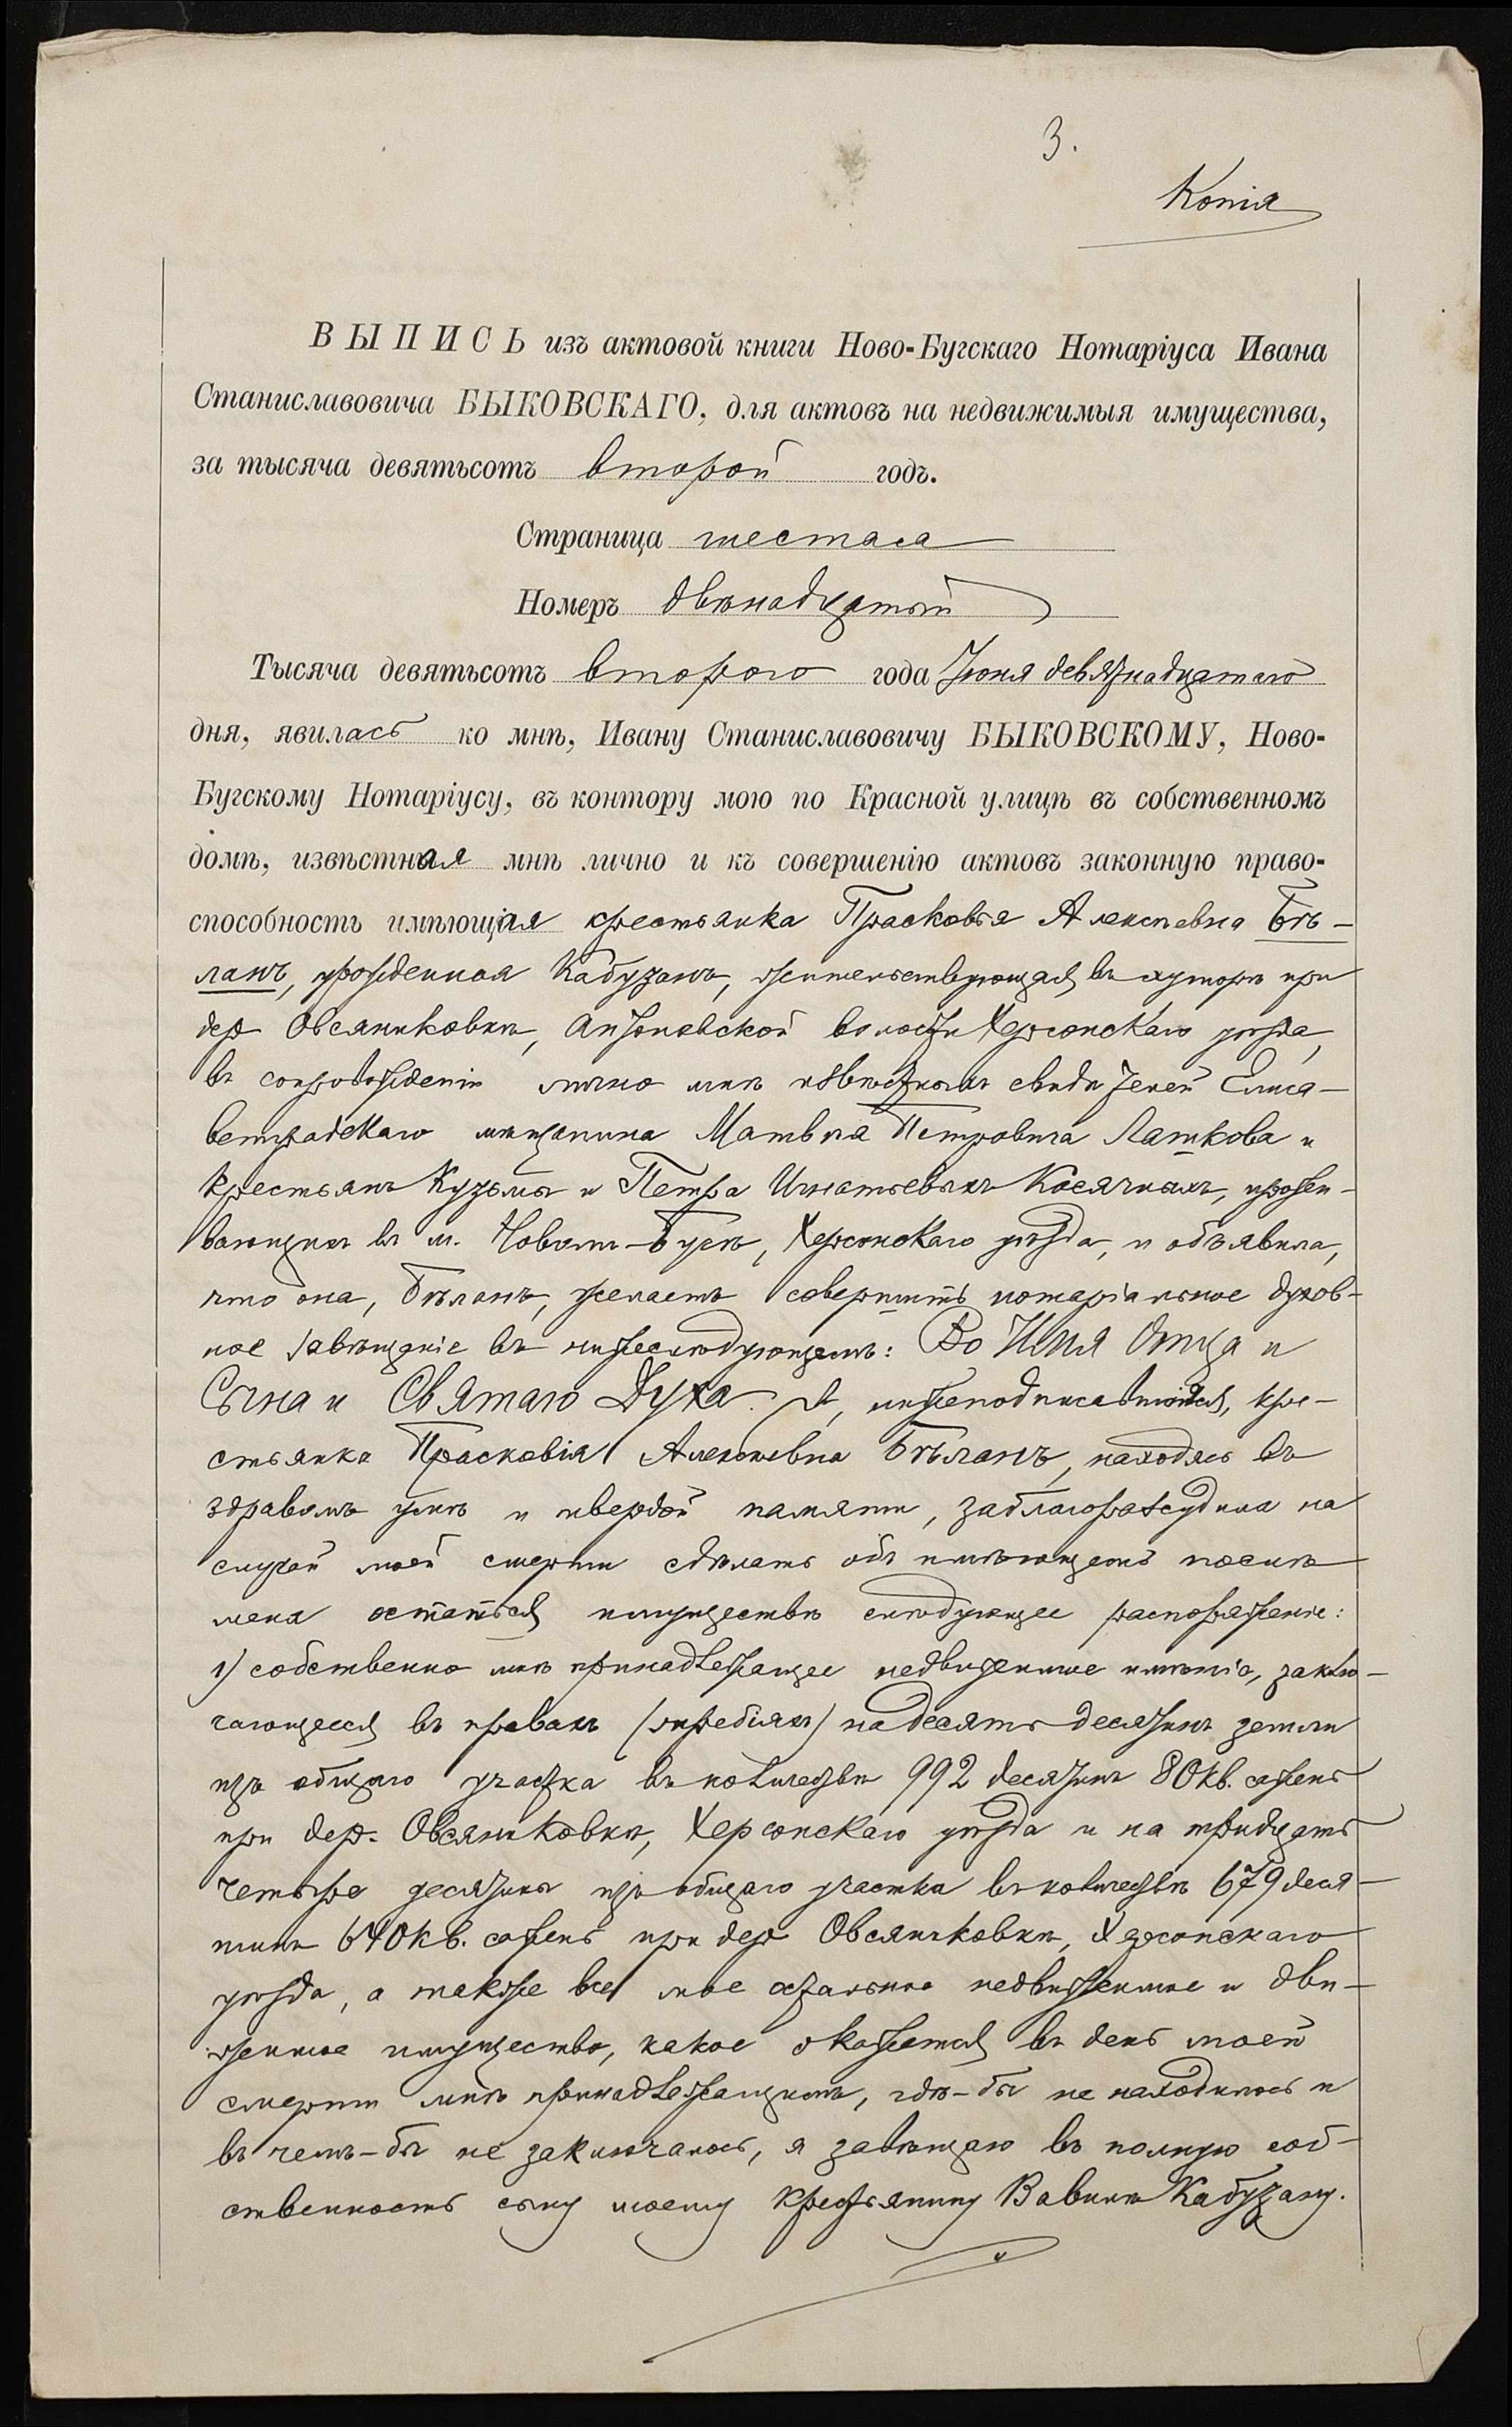 3.
Копія
ВЫПИСЬ изъ актовой книги Ново-Бугскаго Нотаріуса Ивана
Станиславовича БЫКОВСКАГО, для актовъ на недвижимыя имущества,
за тысяча девятьсотъ второй годъ.
Страница шестая
Номеръ двѣнадцатый
Тысяча девятьсотъ второго года Іюня девятнадцатаго
дня, явилась ко мнѣ, Ивану Станиславовичу БЫКОВСКОМУ, Ново-
Бугскому Нотаріусу, въ контору мою по Красной улицѣ въ собственномъ
домѣ, извѣстная мнѣ лично и къ совершенію актовъ законную право-
способность имѣющая крестьянка Прасковья Алексѣевна Бѣ-
ланъ, урожденная Кабузанъ, жительствующая въ хуторѣ при
дер. Овсяниковкѣ, Антоновской волости Херсонскаго уѣзда,
въ сопровожденіи лично мнѣ извѣстныхъ свидѣтелей Елиса-
ветградскаго мѣщанина Матвѣя Петровича Лашкова и
крестьянъ Кузьмы и Петра Игнатьевыхъ Косячныхъ, прожи-
вающихъ въ м. Новомъ-Бугѣ, Херсонскаго уѣзда, и объявила,
что она, Бѣланъ, желаетъ совершить нотаріальное духов-
ное завѣщаніе въ нижеслѣдующемъ: Во Имя Отца и
Сына и Святаго Духа. Я, нижеподписавшаяся, кре-
стьянка Прасковія Алексѣевна Бѣланъ, находясь въ
здравомъ умѣ и твердой памяти, заблагоразсудила на
случай моей смерти сдѣлать объ имѣющемъ послѣ
меня остаться имуществѣ слѣдующее распоряженіе:
1) собственно мнѣ принадлежащее недвижимое имѣніе, заклю-
чающееся въ правахъ (жребіяхъ) на десять десятинъ земли
изъ общаго участка въ количествѣ 992 десятинъ 80 кв. сажень
при дер. Овсяниковкѣ, Херсонскаго уѣзда и на тридцать
четыре десятины изъ общаго участка въ количествѣ 679 деся-
тинъ 640 кв. сажень при дер Овсяниковкѣ, Херсонскаго
уѣзда, а также все мое остальное недвижимое и дви-
жимое имущество, какое окажется въ день моей
смерти мнѣ принадлежащимъ, гдѣ-бы не находилось и
въ чемъ-бы не заключалось, я завѣщаю въ полную соб-
ственность сыну моему крестьянину Вавилѣ Кабузану.